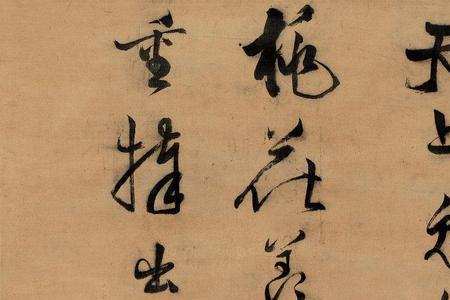 天上
桃花
重捧出